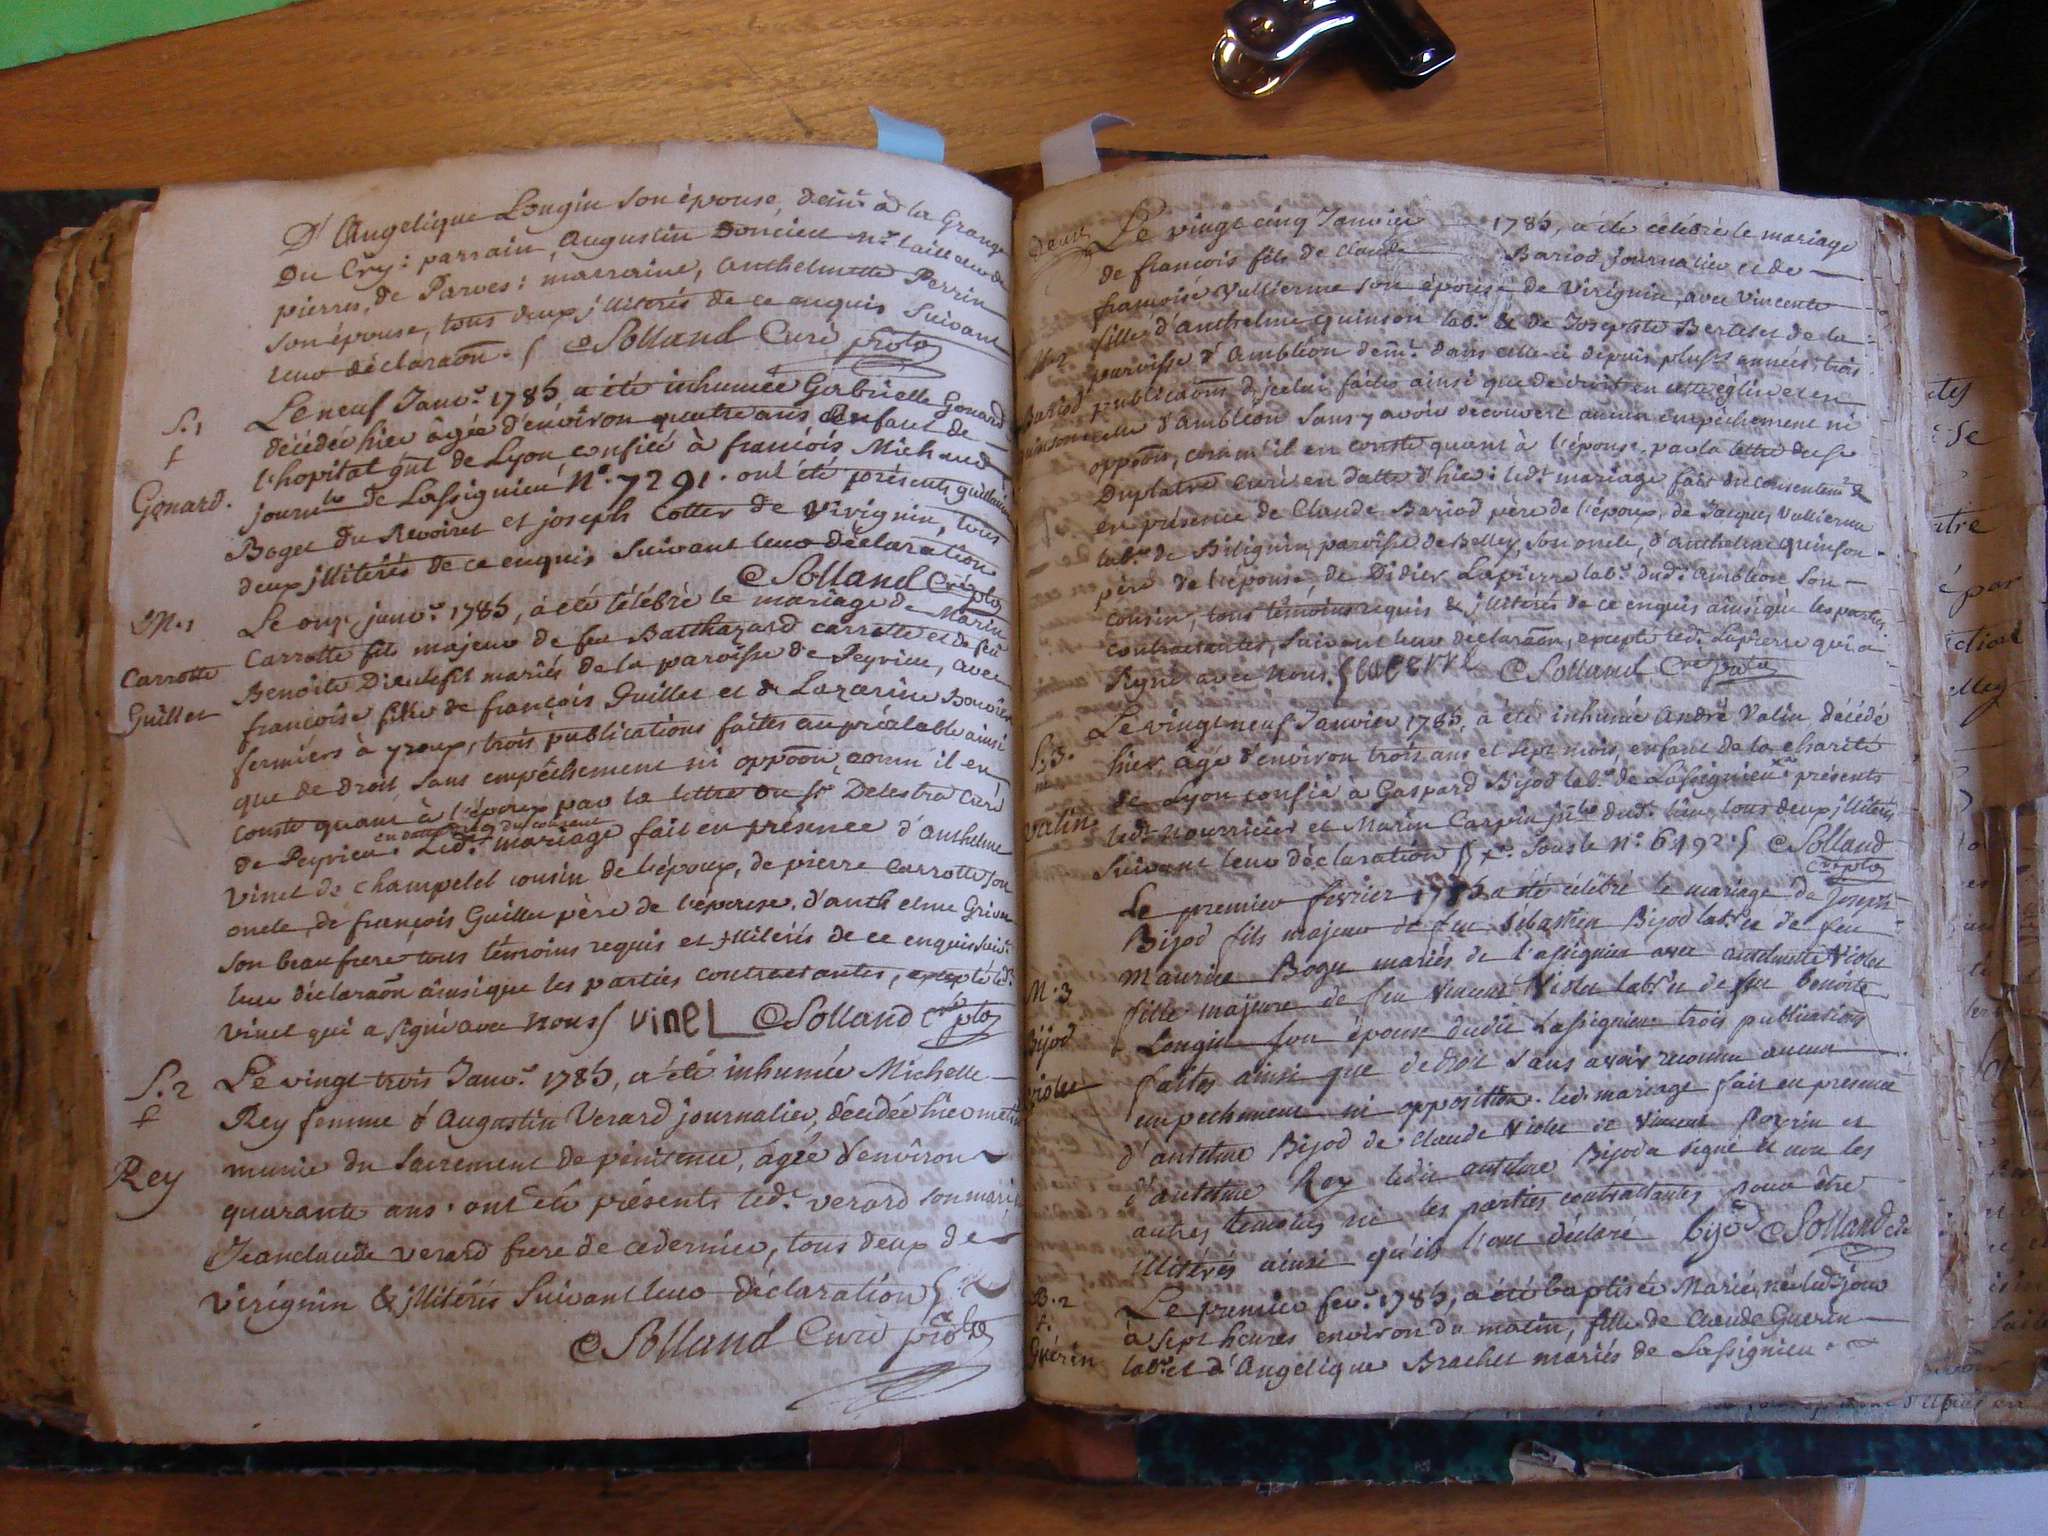 D'Angelique Longin son épouse, dem.t à la Grange
du Cry: parrain, Augustin Doncieu m.e tailleur de
pierres, de Parves: marraine, Anthelmette Perrin
son épouse, tous deux jllitérés de ce enquis suivant
leur déclaraōn. Solland Curé
S.1
f
Gonard.
Le neuf Janv.r 1785, a été inhumée Gabrielle Gonard
décédée hier âgée d'environ quatre ans Enfant de
l'hopital gñl de Lyon confiée à françois Michaud
journ.lier de Lassignieu N.o 7291. ont été présents
Boget du Revoiret et joseph Cottet de Virignin, tous
deux jllitérés de ce enquis suivant leur déclaration
Solland
M.1
Carrotte
Guillet
Le onze janv.r 1785, a été célébré le mariage de Marin
Carrotte fils majeur de feu Balthazard carrotte et de feu
Benoîte Dieulefit mariés de la paroisse de Peyrieu, avec
françoise fille de françois Guillet et de Lazarine Bouvier
fermiers à yroux, trois publications faites au préalable ainsi
que de droit sans empêchement ni oppoōn, comm'il en
conste quant à l'époux par la lettre du S.r Delestra Curé
en datte du 9 du courant
de Peyrieu. Led.t mariage fait en présence d'anthelme
vinet de Champetel cousin de l'époux, de pierre carrotte son
oncle, de françois Guillet père de l'épouse, d'anthelme
son beaufrere tous témoins requis et jllitérés de ce enquis suiv.t
leur déclaraōn ainsi que les parties contractantes, excepté led.t
vinet qui a signé avec nous vinet Solland
S.2
f
Rey
Le vingt trois Janv.r 1785, a été inhumée Michelle
Rey femme d'Augustin Verard journalier, décédée hier matin
munie du sacrement de pénitence, agée d'environ
quarante ans. ont été présents led.t verard son mari,
Jeanclaude verard frere de ce dernier, tous deux de
virignin & jllitérés suivant leur déclaration
Solland Curé
Le vingt cinq Janvier 1785, a été célébré le mariage
de francois fils de claude Bariod journalier et de
françoise Vullierme son épouse de virignin, avec vincente
M.2
Bariod
quinson
fille d'anthelme quinson lab.r & de Josephte Bertelet de la
paroisse d'Ambléon dem.t dans celle-ci depuis plus.rs années, trois
publicaōns d'jcelui faites ainsi que de droit en cette eglise et en
celle d'Ambléon sans y avoir découvert aucun empêchement ni
oppoōn, comm'il en conste quant à l'épouse par la lettre du S.r
Duplatre curé en datte d'hier: led.t mariage fait du consentem.t &
en présence de Claude Bariod père de l'époux, de Jacques Vullierme
lab.r de Bilignin, paroisse de Belley, son oncle, d'anthelme quinson
père de l'épouse, de Didier Lapierre lab.r dud.t Ambléon son
cousin, tous témoins requis & jllitérés de ce enquis ainsi que les parties
contractantes, suivant leur déclaraōn, excepté led.t Lapierre qui a
signé avec nous. Solland
S.3.
m
Valin
Le vingt neuf Janvier 1785, a été inhumé André Valin décédé
hier, âgé d'environ trois ans et sept mois, enfant de la charité
de Lyon confié à Gaspard Bijod lab.r de Lassignieu présents
led.t nourricier et Marin Carpin dud.t lieu, tous deux jllitérés
suivant leur déclaration sous le N.o 6192. Solland
M.3
Bijod
violet
Le premier fevrier 1785 a été célébré le mariage de Joseph
Bijod fils majeur de feu sébastien Bijod lab.r et de feu
Maurise Boget mariés de Lassignieu avec antelmette Violet
fille majeure de feu vincent Violet lab.r et de feu benoite
Longin son épouse dudit Lassignieu trois publications
faites ainsi que de droit sans avoir reconnu aucun
empechement ni opposition. led. mariage fait en presence
d'antelme Bijod de claude violet de vincent Perrin et
d'antelme Rey ledit antelme Bijod a signé et non les
autres temoins ni les parties contractantes pour être
illitérés ainsi qu'ils l'ont déclaré bijod Solland
B.2
f.
Guérin
Le premier fev.r 1785, a été baptisée Marie, née led.t jour
à sept heures environ du matin, fille de Claude Guerin
lab.r et d'Angelique Brachet mariés de Lassignieu